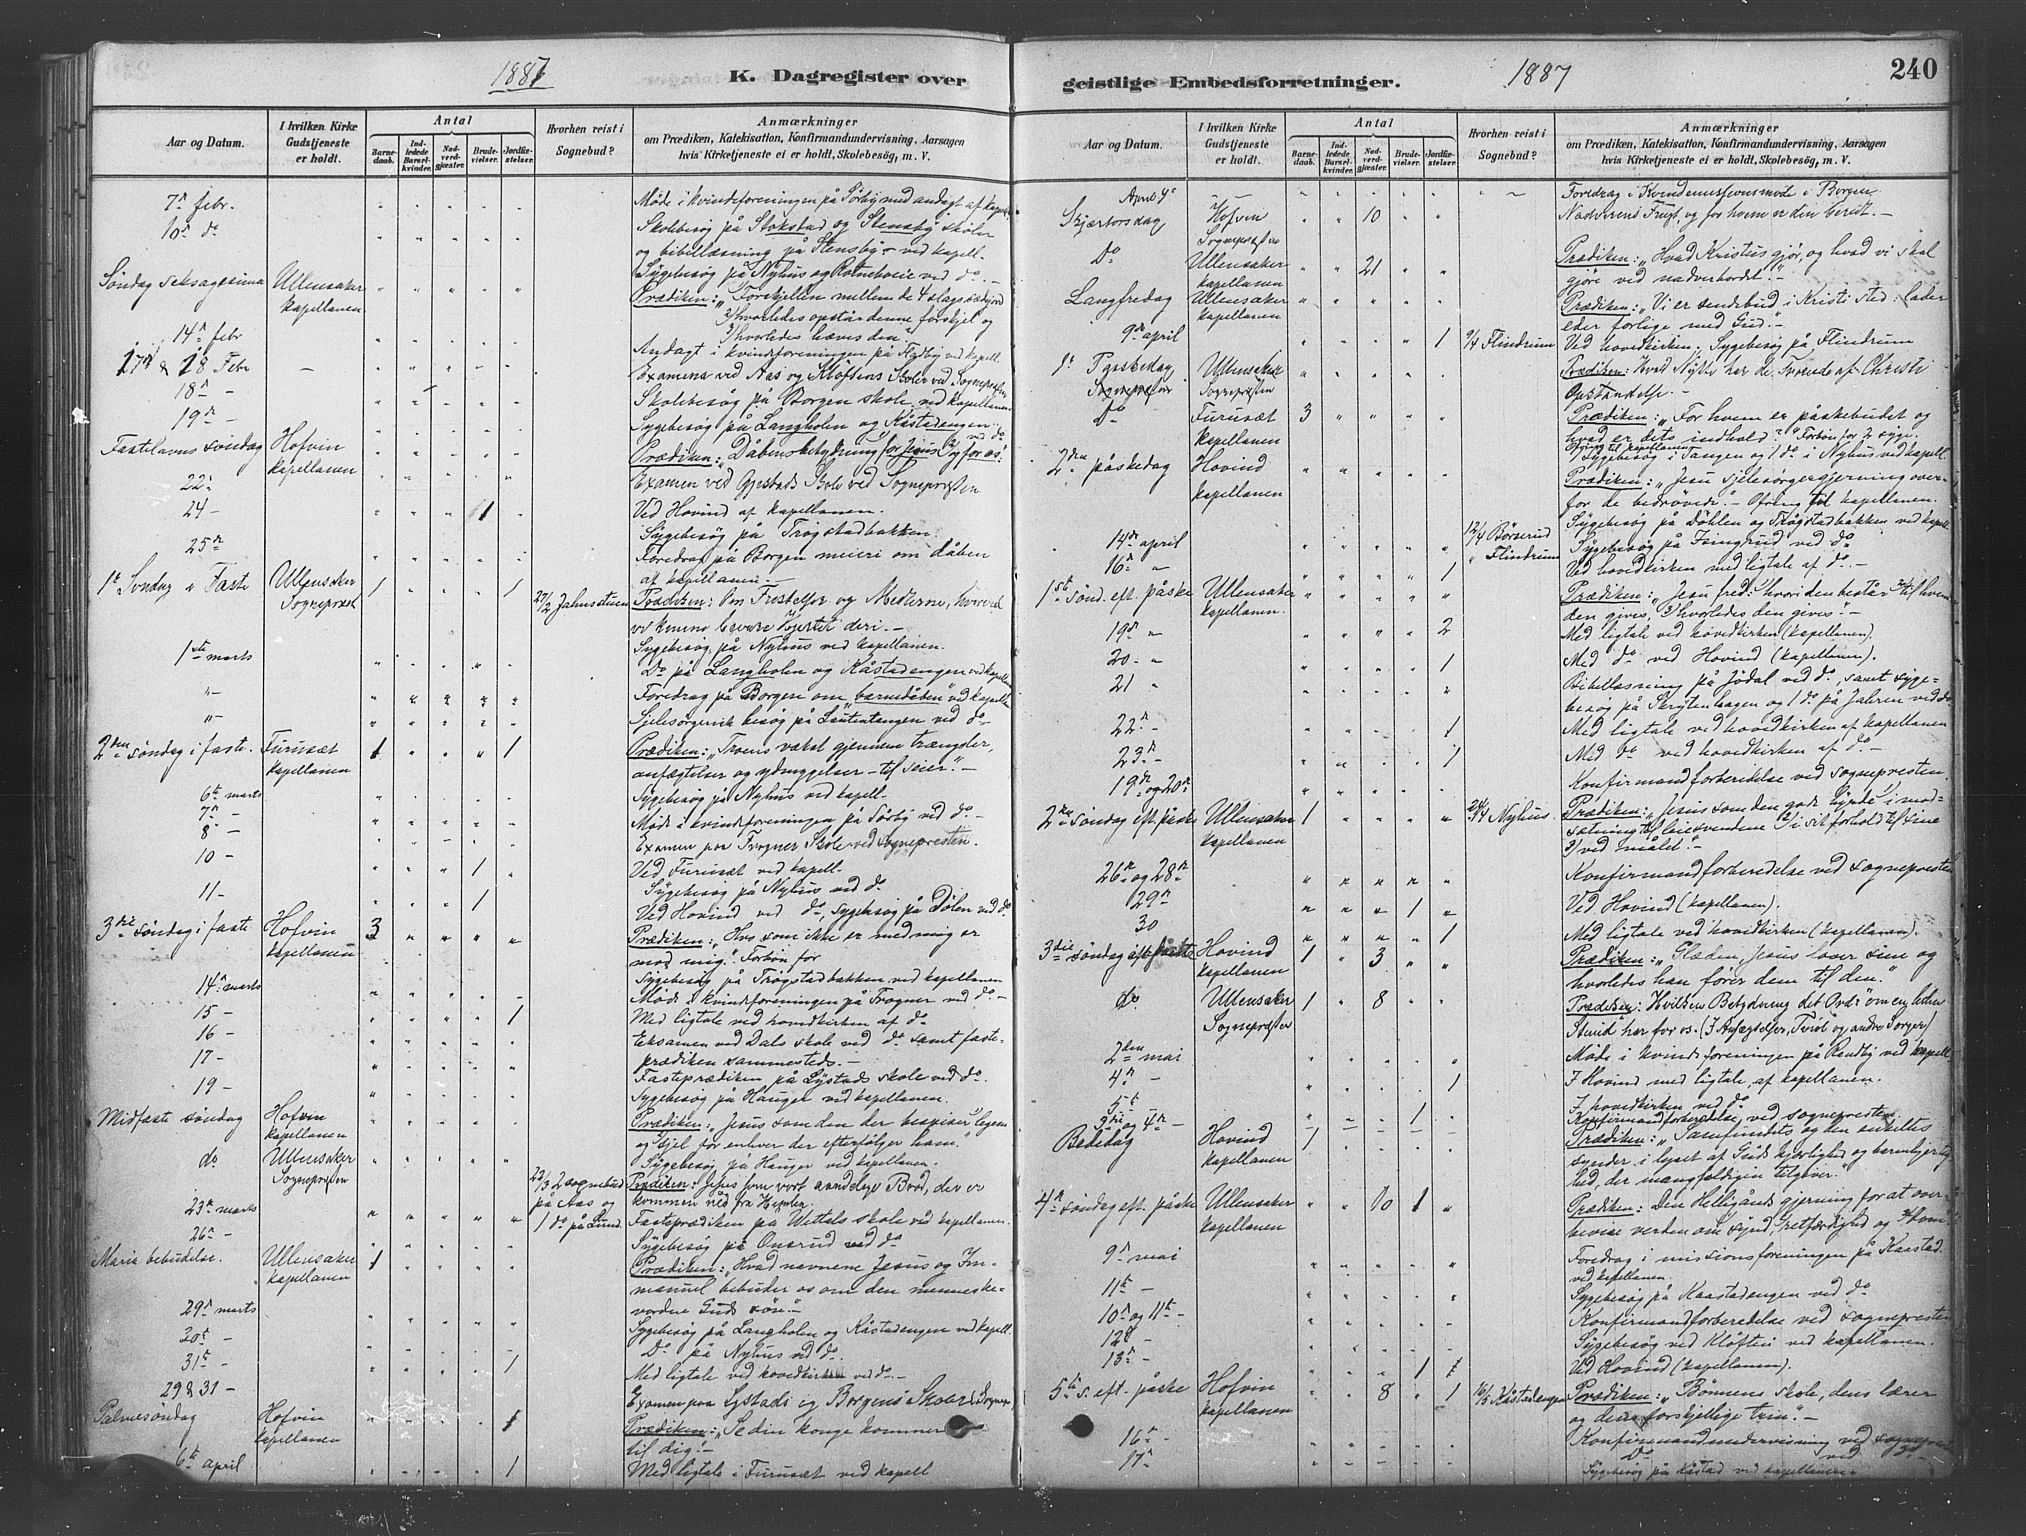 1887
K. Dagregister over
geistlige Embedsforretninger.
1887
240
Aar og Datum.
I hvilken Kirke Gudstjeneste er holdt.
Antal
Barne-daab.
Ind-ledede Barsel-kvinder.
Nad-verd-gjæster.
Brude-vielser.
Jordfæ-stelser.
Hvorhen reist i Sognebud?
Anmærkninger
om Prædiken, Katekisation, Konfirmandundervisning, Aarsagen
hvis Kirketjeneste ei er holdt, Skolebesøg, m. V.
7n febr. Møde i kvindeforeningen på Sørby med andagt af kapell
10n do Skolebesøg på Stokstad og Stensby skoler
og bibellæsning på Stensby - ved kapell.
Sygebesøg på Nyhus og ved do. -
Søndag seksagesima Ullensaker kapellanen Prædiken: "Forskjellen mellem de 4 slags sædejord
2/ hvorledes opstår denne forskjel og
3/ hvorledes hæves den."
14n febr Andagt i kvindeforeningen på ved kapell.
17n & 18 Febr - Examina ved Aas og Kløftens Skoler ved Sognepræsten
18n - Skolebesøg på Borgen skole ved kapellanen
19n - Sygebesøg på Langholen og Kåstadengen ved do
Fastelavns søndag Hofvin kapellanen Prædiken: "Dåbens betydning for Jesus 2/ for os."
22n Examen ved Gjestads Skole ved Sognepræsten
24 - 1 Ved Hovind af kapellanen.
Sygebesøg på Trøgstadbakken.
25n Foredrag på Borgen meieri om dåben
af kapellanen. -
1e Søndag i Faste Ullensaker Sognepræst 1 1 27/2 Jahnsstuen Prædiken: Om Fristelser og Midlerne, hvorved
vi kunne bevare Hjertet deri. -
Sygebesøg på Nyhus ved kapellanen.
1ste marts Do på Langholen og Kåstadengen ved kapell
"- Foredrag på Borgen om "barnedåben" ved kapell
"- Sjelesørgerisk besøg på ved do -
2den søndag i faste. Furusæt kapellanen 1 1 Prædiken: "Troens vækst gjennem trængsler,
anfægtelser og ydmygelser - til seier." -
6te marts Sygebesøg på Nyhus ved kapell. -
7n - Møde i kvindeforeningen på Sørby ved do -
8n - Examen paa Frogner Skole ved Sognepresten.
10 - 1 Ved Furusæt ved kapell.
Sygebesøg på Nyhus ved do
11 - 1 Ved Hovind ved do, sygebesøg på Dølen ved do
3die søndag i faste Hofvin kapellanen 3 Prædiken: "Hvo som ikke er med mig er
mod mig". Forbøn for
Sygebesøg på Trøgstadbakken ved kapellanen
14n marts Møde i kvindeforeningen på Frogner ved do -
15 - 1 Med ligtale ved hovedkirken af do -
16 - Eksamen ved Dals skole ved do samt faste-
17 - prædiken sammesteds. -
Fasteprædiken på Lystads skole ved do.
19 - Sygebesøg på Hauger ved kapellanen.
Midfaste søndag Hofvin kapellanen Prædiken: "Jesus som den der bespiser legem
og sjel for enhver der efterfølger ham."
Sygebesøg på Hauger ved kapellanen.
do Ullensaker Sognepræsten 22/3 2 sognebud på Aas og 1 do på Lund Prædiken: Jesus som vort aandelige Brød, der er
kommen ned fra Himlen.
23n marts Fasteprædiken på Wettals skole ved kapellanen.
26n - Sygebesøg på Onsrud ved do
Maria bebudelse. Ullensaker kapellanen 1 Prædiken: "Hvad navnene Jesus og Im-
manuel bebuder os om den menneske-
vordne Guds søn." -
29n marts Sygebesøg på Langholen og Kåstadengen ved kapell.
30t - Do på Nyhus ved do.
31t - 1 Med ligtale ved hovedkirken ved do. -
29 & 31 - Examen paa Lystad og Borgens Skoler v. Sognepr
Palmesøndag Hofvin kapellanen 1 Prædiken: "Se din konge kommer
til dig!" -
6te april 1 Med ligtale i Furusæt ved kapell
Aar og Datum.
I hvilken Kirke Gudstjeneste er holdt.
Antal
Barne-daab.
Ind-ledede Barsel-kvinder.
Nad-verd-gjæster.
Brude-vielser.
Jordfæ-stelser.
Hvorhen reist i Sognebud?
Anmærkninger
om Prædiken, Katekisation, Konfirmandundervisning, Aarsagen
hvis Kirketjeneste ei er holdt, Skolebesøg, m. V.
April 4e - Foredrag i Kvindemissionsmøde i Borgen
Skjærtorsdag Hofvin Sognepræsten 10 Nadverens Frugt, og for hvem er den beredt. -
Do Ullensaker kapellanen 21 Prædiken: "Hvad Kristus gjør, og hvad vi skal
gjøre ved nadverbordet." -
Langfredag Ullensaker kapellanen Prædiken: "Vi er sendebud i Kristi sted: lader
eder forlige med Gud." -
9de april 1 9/4 Flindrum Ved hovedkirken. Sygebesøg på Flindrum
1e Paaskedag Ullensaker Sognepræsten Prædiken: Hvad Nytte har de Troende af Christi
Opstandelse. -
Do Furusæt kapellanen 3 Prædiken: "For hvem er påskebudet og
hvad er dets indhold?" Forbøn for 2 syge.
Ofring til kapellanen.
Sygebesøg i Tangen og 1 do i Nyhus ved kapell.
2den påskedag Hovind kapellanen Prædiken: "Jesu sjelesørgergjerning over-
for de bedrøvede." - Ofring til kapellanen.
12/4 Børserud Sygebesøg på Döhlen og Trøgstadbakken ved kapell.
14de april " Flindrum Sygebesøg på ved do
16n " 1 Ved hovedkirken med ligtale af do. -
1ste sønd. eft. påske Ullensaker kapellanen. Prædiken: "Jesu fred: 1/ hvori den består 2/ til hvem
den gives, 3/ hvorledes den gives". -
19n " 2 Med ligtale ved hovedkirken (kapellanen).
20. " 1 Med do ved Hovind (kapellanen).
21 " Bibellæsning på Jödal ved do, samt syge-
besøg på Skrytenhagen og 1 do på Jahren ved do
22n - 1 Med ligtale ved hovedkirken af kapellanen
23n - 1 Med do ved hovedkirken af do -
19de og 20n Konfirmandforberedelse ved sognepresten.
2den søndag eft. påske Ullensaker kapellanen 1 24/4 Nyhus. Prædiken: "Jesus som den gode hyrde 1/ i mod-
sætning til leiesvendene 2/ i sit forhold til sine
3/ ved målet." -
26n og 28n Konfirmandforberedelse ved sognepresten
29n 1 Ved Hovind (kapellanen).
30 1 Med ligtale ved hovedkirken (kapellanen).
3die søndag eft. påske Hovind kapellanen 1 3 Prædiken: "Glæden, Jesus lover sine og
hvorledes han fører dem til den."
do Ullensaker Sognepræsten 1 8 Prædiken: Hvilken Betydning det Ord "om en liden
Stund" har for os. (I Anfægtelser, Tvivl og andre Sorger)
2den mai Møde i kvindeforeningen på Randby ved kapell.
4n - 1 I Hovind med ligtale af kapellanen.
5t 1 I hovedkirken ved do
3die og 4n - Konfirmandforberedelse ved sognepresten
Bededag Hovind kapellanen 1 Prædiken: "Samfundets og den enkeltes
synder i lyset af Guds kjærlighed og barmhjertig-
hed, der mangfoldigen tilgiver."
4n søndag eft. påske Ullensaker kapellanen 10 1 Prædiken: Den Helligånds gjerning for at over-
bevise verden om synd, retfærdighed og dom.
9n mai Foredrag i missionsforeningen på Kaastad.
ved kapellanen.
11te - Sygebesøg på Kaastadengen ved do
10n og 11te - Konfirmandforberedelse ved sognepresten
12t - Sygebesøg ved Kløften ved kapellanen.
13n - 1 1 Ved Hovind (kapellanen).
5te s. eft. påske Hofvin kapellanen 8 1 16/5 Kåstadengen Prædiken: "Bønnens skole, dens lærer
og dens forskjellige trin." -
16n - Konfirmandundervisning ved sognepresten
17n Do ved do -
Sygebesøg på Kåstad ved kapellanen. -